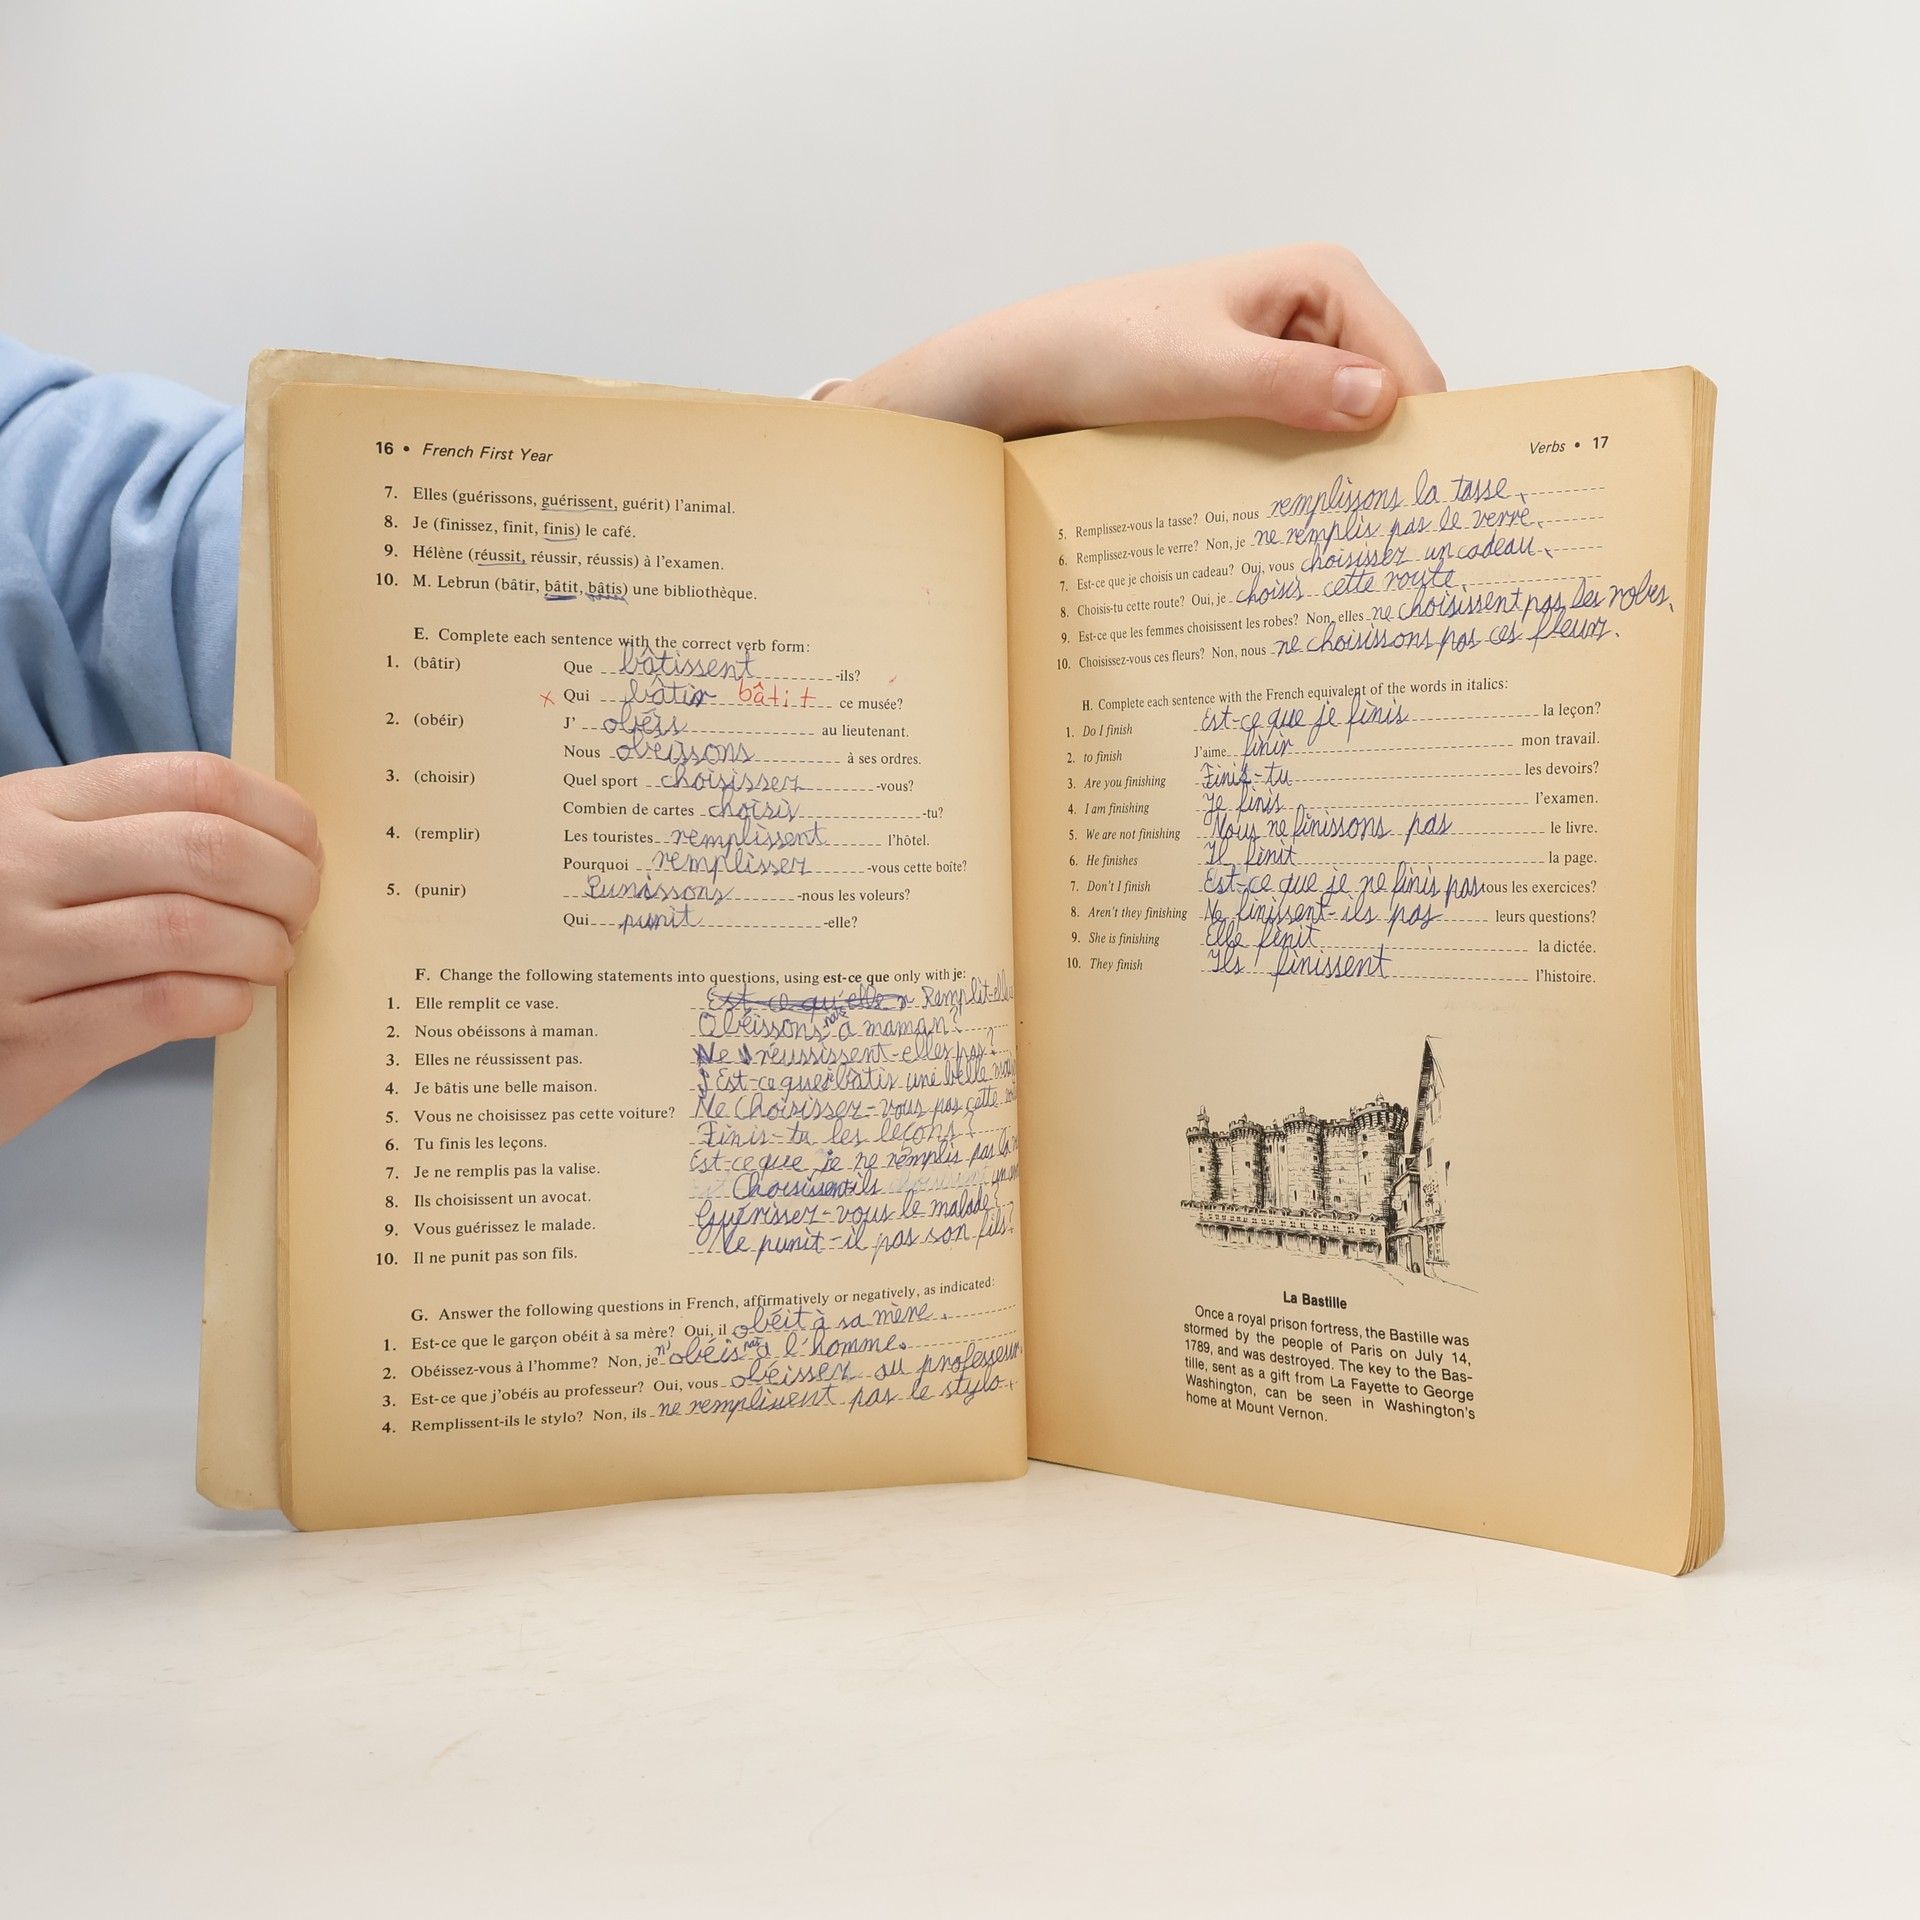 16 • French First Year
7. Elles (guérissons, guérissent, guérit) l'animal.
8. Je (finissez, finit, finis) le café.
9. Hélène (réussit, réussir, réussis) à l'examen.
10. M. Lebrun (bâtir, bâtit, bâtis) une bibliothèque.
E. Complete each sentence with the correct verb form:
1. (bâtir) Que bâtissent -ils?
x Qui bâtir bâtit ce musée?
2. (obéir) J' obéis au lieutenant.
Nous obéissons à ses ordres.
3. (choisir) Quel sport choisissez -vous?
Combien de cartes choisis -tu?
4. (remplir) Les touristes remplissent l'hôtel.
Pourquoi remplissez -vous cette boîte?
5. (punir) Punissons -nous les voleurs?
Qui punit -elle?
F. Change the following statements into questions, using est-ce que only with je:
1. Elle remplit ce vase. Est-ce qu'elle r Remplit-elle
2. Nous obéissons à maman. Obéissons nous à maman?
3. Elles ne réussissent pas. Ne réussissent-elles pas?
4. Je bâtis une belle maison. Est-ce que je bâtis une belle
5. Vous ne choisissez pas cette voiture? Ne Choisissez-vous pas cette
6. Tu finis les leçons. Finis-tu les leçons?
7. Je ne remplis pas la valise. Est-ce que je ne remplis pas la
8. Ils choisissent un avocat. Choisissent-ils un
9. Vous guérissez le malade. Guérissez-vous le malade?
10. Il ne punit pas son fils. Ne punit-il pas son fils?
G. Answer the following questions in French, affirmatively or negatively, as indicated:
1. Est-ce que le garçon obéit à sa mère? Oui, il obéit à sa mère.
2. Obéissez-vous à l'homme? Non, je n'obéis pas à l'homme.
3. Est-ce que j'obéis au professeur? Oui, vous obéissez au professeur
4. Remplissent-ils le stylo? Non, ils ne remplissent pas le stylo.
Verbs • 17
5. Remplissez-vous la tasse? Oui, nous remplissons la tasse.
6. Remplissez-vous le verre? Non, je ne remplis pas le verre.
7. Est-ce que je choisis un cadeau? Oui, vous choisissez un cadeau.
8. Choisis-tu cette route? Oui, je choisis cette route.
9. Est-ce que les femmes choisissent les robes? Non, elles ne choisissent pas les robes.
10. Choisissez-vous ces fleurs? Non, nous ne choisissons pas ces fleurs.
H. Complete each sentence with the French equivalent of the words in italics:
1. Do I finish Est-ce que je finis la leçon?
2. to finish J'aime finir mon travail.
3. Are you finishing Finis-tu les devoirs?
4. I am finishing Je finis l'examen.
5. We are not finishing Nous ne finissons pas le livre.
6. He finishes Il finit la page.
7. Don't I finish Est-ce que je ne finis pas tous les exercices?
8. Aren't they finishing Ne finissent-ils pas leurs questions?
9. She is finishing Elle finit la dictée.
10. They finish Ils finissent l'histoire.
La Bastille
Once a royal prison fortress, the Bastille was
stormed by the people of Paris on July 14,
1789, and was destroyed. The key to the Bas-
tille, sent as a gift from La Fayette to George
Washington, can be seen in Washington's
home at Mount Vernon.